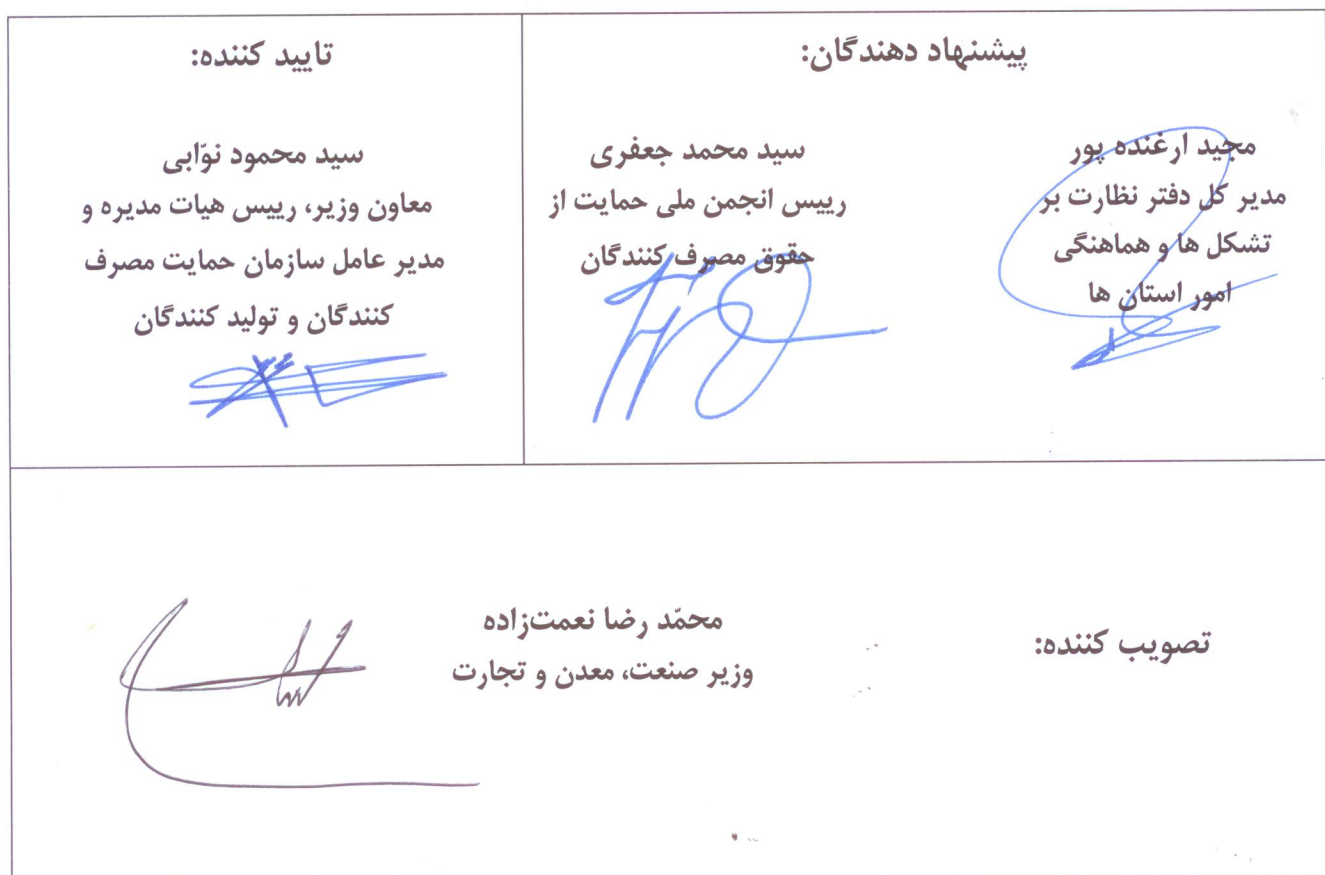 پیشنهاد دهندگان:
مجید ارغنده پور
مدیر کل دفتر نظارت بر
تشکل ها و هماهنگی
امور استان ها
سید محمد جعفری
رییس انجمن ملی حمایت از
حقوق مصرف کنندگان
تایید کننده:
سید محمود نوّابی
معاون وزیر، رییس هیات مدیره و
مدیر عامل سازمان حمایت مصرف
کنندگان و تولید کنندگان
تصویب کننده:
محمّد رضا نعمت‌زاده
وزیر صنعت، معدن و تجارت